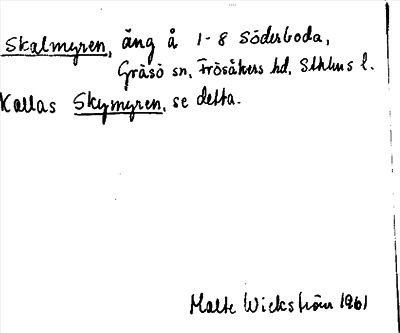 Skalmyren, äng å 1-8 Söderboda,
Gräsö sn, Frösåkers hd, Sthlms l.
Kallas Skymyren, se detta.
Malte Wickström 1961